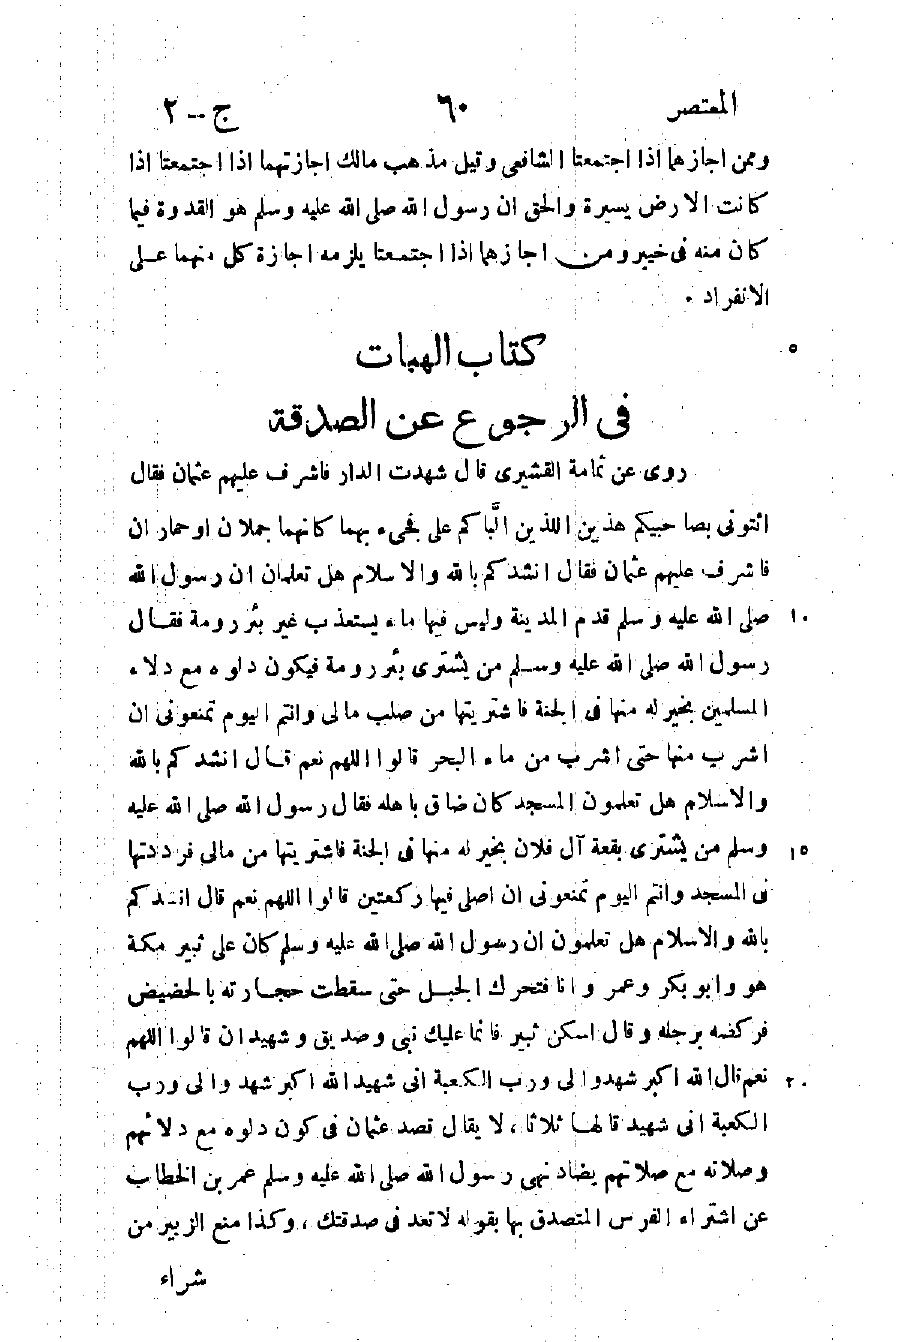 المعتصر ٦٠ ج – ٢
وممن اجازهما اذا اجتمعتا الشافعى وقيل مذهب مالك اجازتهما اذا اجتمعتا اذا
كانت الارض يسيرة والحق ان رسول الله صلى الله عليه وسلم هو القدوة فيما
كان منه فى خيبر ومن اجازهما اذا اجتمعتا يلزمه اجازة كل منهما على
الانفراد .
كتاب الهبات ٥
فى الرجوع عن الصدقة
روى عن ثمامة القشيرى قال شهدت الدار فاشرف عليهم عثمان فقال
ائتونى بصاحبيكم هذين اللذين الّباكم على فجىء بهما كانهما جملان او حماران
فاشرف عليهم عثمان فقال انشدكم بالله والاسلام هل تعلمان ان رسول الله
صلى الله عليه وسلم قدم المدينة وليس فيها ماء يستعذب غير بئر رومة فقال ١٠
رسول الله صلى الله عليه وسلم من يشترى بئر رومة فيكون دلوه مع دلاء
المسلمين بخير له منها فى الجنة فاشتريتها من صلب مالى وانتم اليوم تمنعونى ان
اشرب منها حتى اشرب من ماء البحر قالوا اللهم نعم قال انشدكم بالله
والاسلام هل تعلمون المسجد كان ضاق باهله فقال رسول الله صلى الله عليه
وسلم من يشترى بقعة آل فلان بخير له منها فى الجنة فاشتريتها من مالى فرددتها ١٥
فى المسجد وانتم اليوم تمنعونى ان اصلى فيها ركعتين قالوا اللهم نعم قال انشدكم
بالله والاسلام هل تعلمون ان رسول الله صلى الله عليه وسلم كان على ثبير مكة
هو وابو بكر وعمر وانا فتحرك الجبل حتى سقطت حجارته بالحضيض
فركضه برجله وقال اسكن ثبير فانما عليك نبى وصديق وشهيدان قالوا اللهم
نعم قال الله اكبر شهدوا لى ورب الكعبة انى شهيد الله اكبر شهدوا لى ورب ٢٠
الكعبة انى شهيد قالها ثلاثا ، لا يقال قصد عثمان فى كون دلوه مع دلائهم
وصلاته مع صلاتهم يضاد نهى رسول الله صلى الله عليه وسلم عمر بن الخطاب
عن اشتراء الفرس المتصدق بها بقوله لا تعد فى صدقتك ، وكذا منع الزبير من
شراء